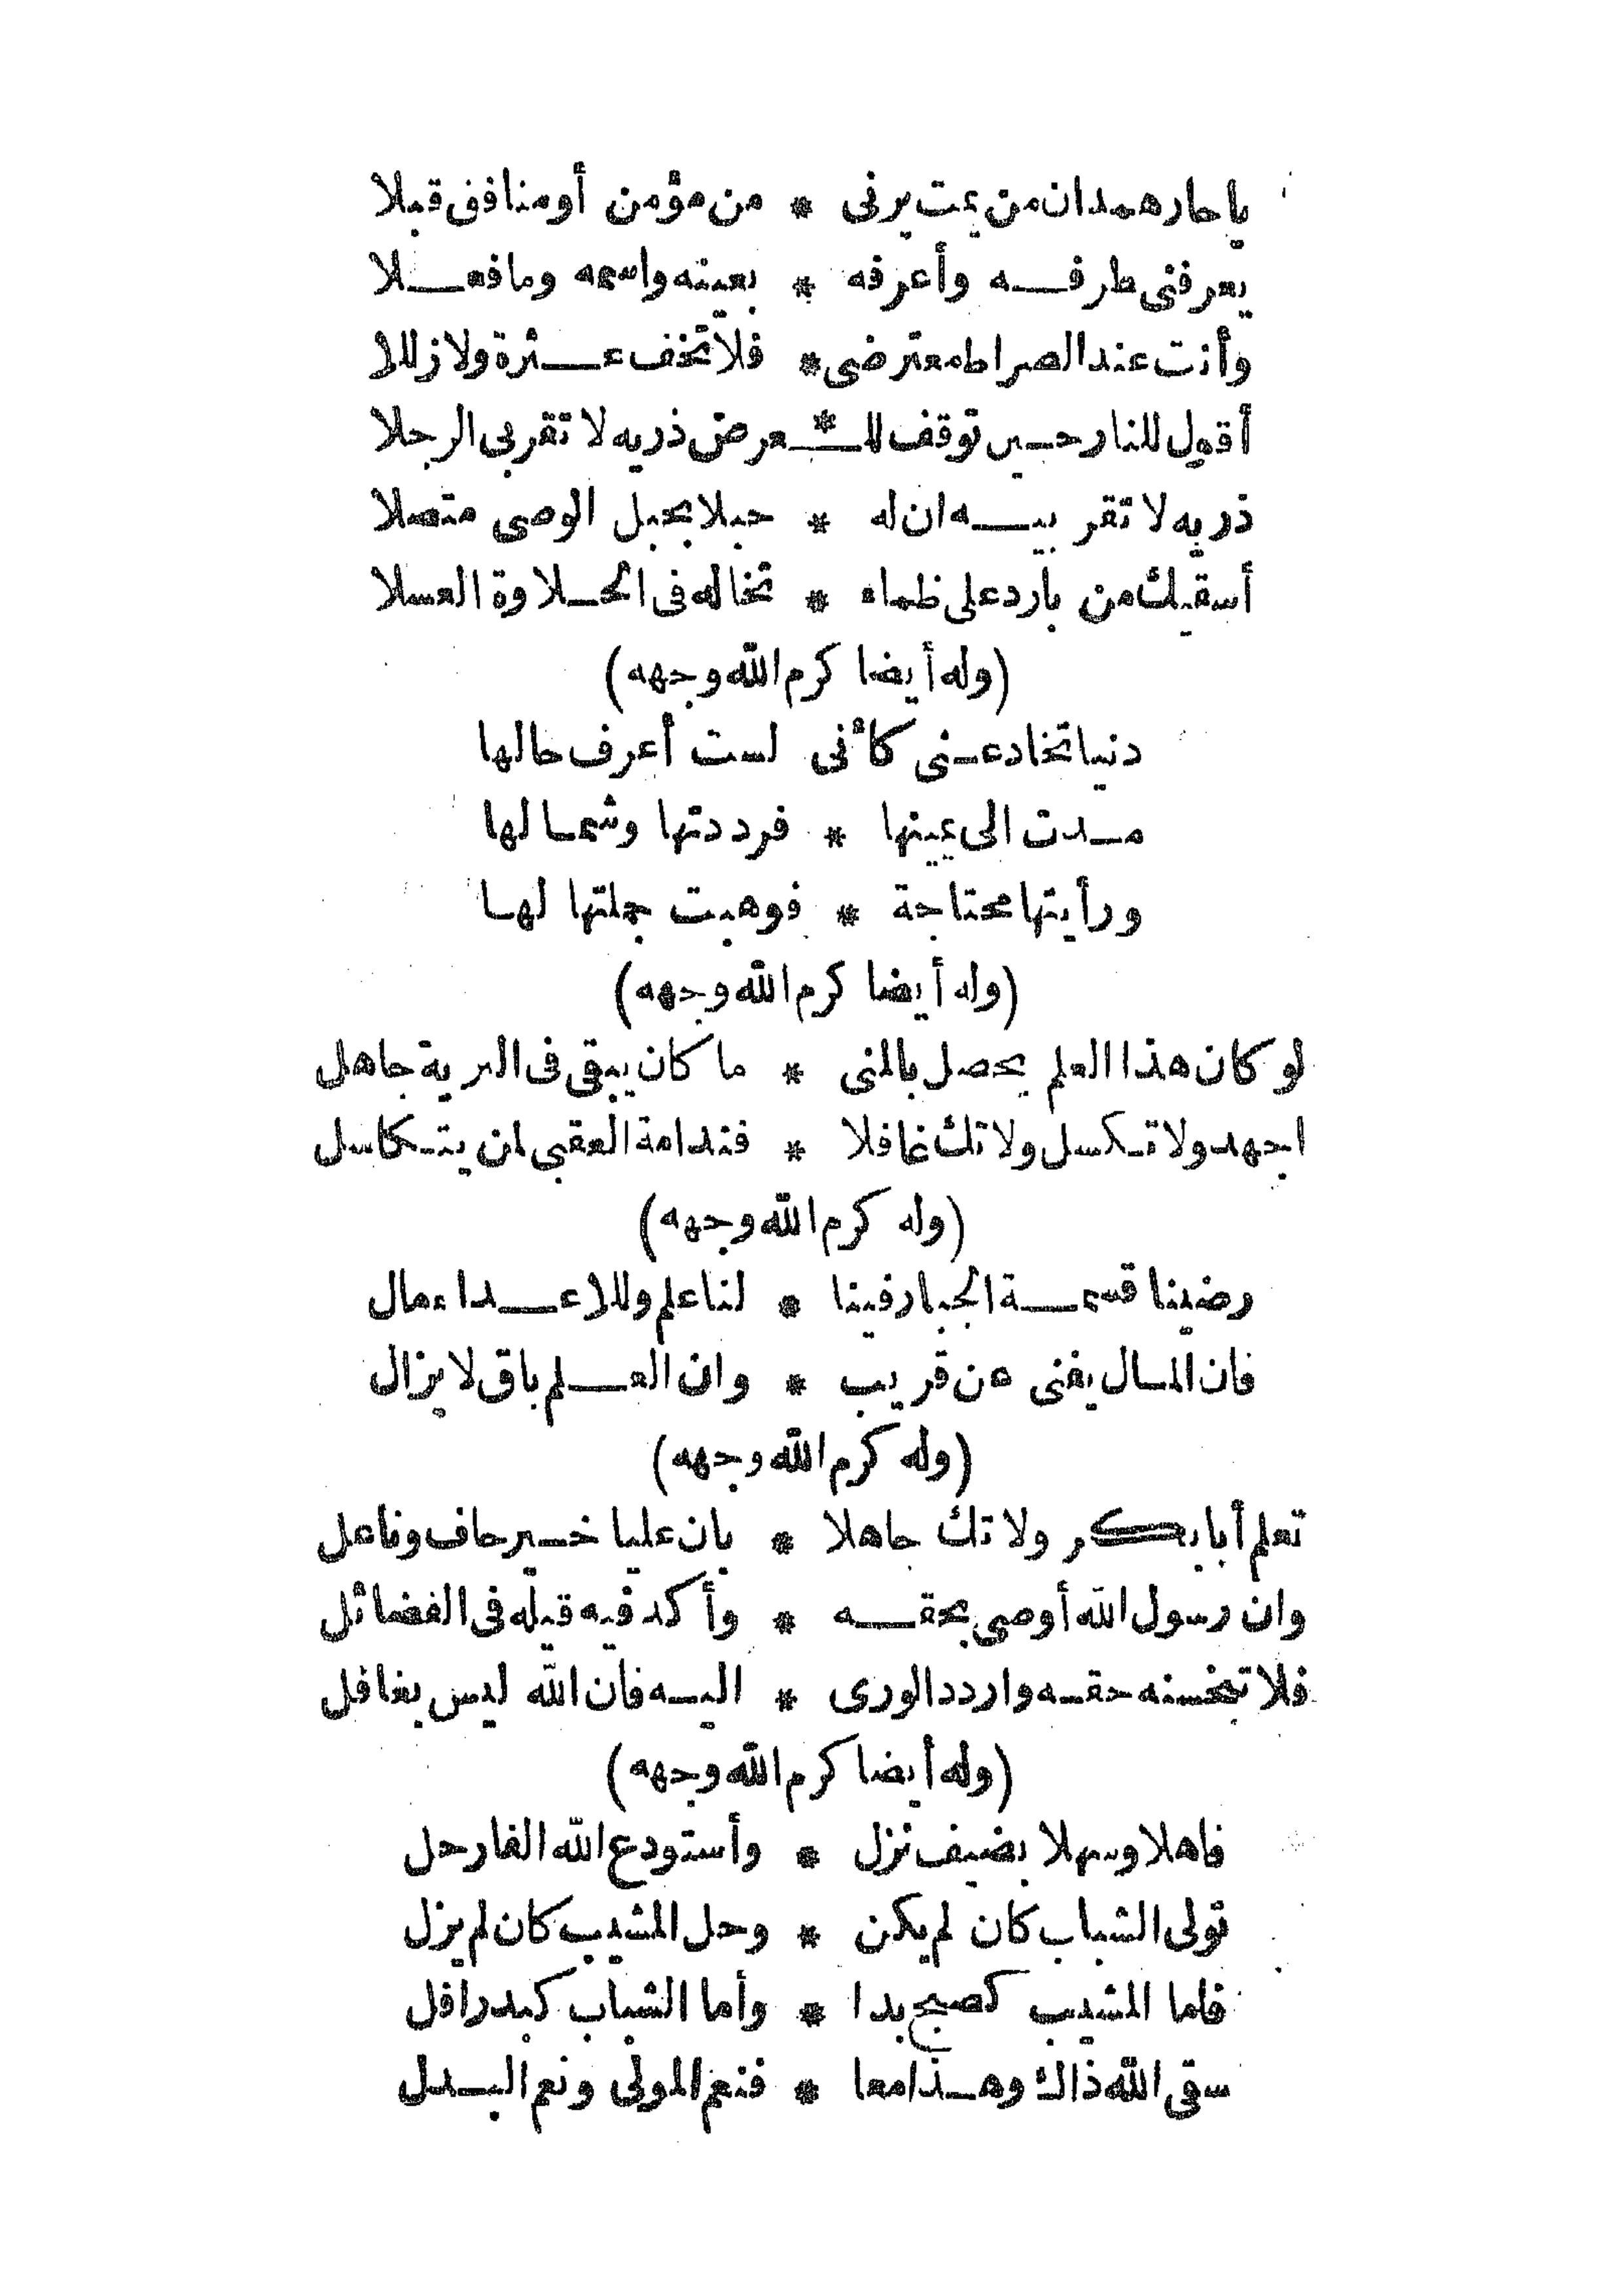 يا حار همدان من يمت يرنى * من مؤمن أو منافق قبلا
يعرفنى طرفه وأعرفه * بعينه واسمه وما فعلا
وأنت عند الصراط معترضى * فلا تخف عثرة ولا زللا
أقول للنار حين توقف للـ * ـعرض ذريه لا تقربى الرجلا
ذريه لا تقربيه ان له * حبلا بحبل الوصى متصلا
أسقيك من بارد على ظماء * تخاله فى الحلاوة العسلا
(وله أيضا كرم الله وجهه)
دنيا تخادعنى كأنى لست أعرف حالها
مدت الى يمينها * فرددتها وشمالها
ورأيتها محتاجة * فوهبت جملتها لها
(وله أيضا كرم الله وجهه)
لو كان هذا العلم يحصل بالمنى * ما كان يبقى فى البرية جاهل
اجهد ولا تكسل ولا تك غافلا * فندامة العقبى لمن يتكاسل
(وله كرم الله وجهه)
رضينا قسمة الجبار فينا * لنا علم وللاعداء مال
فان المال يفنى عن قريب * وان العلم باق لا يزال
(وله كرم الله وجهه)
تعلم أبا بكر ولا تك جاهلا * بان عليا خير حاف وناعل
وان رسول الله أوصى بحقه * وأكد فيه قيله فى الفضائل
فلا تبخسنه حقه واردد الورى * اليه فان الله ليس بغافل
(وله أيضا كرم الله وجهه)
فاهلا وسهلا بضيف نزل * وأستودع الله الفا رحل
تولى الشباب كان لم يكن * وحل المشيب كان لم يزل
فاما المشيب كصبح بدا * وأما الشباب كبدر افل
سقى الله ذاك وهذا معا * فنعم المولى ونعم البدل